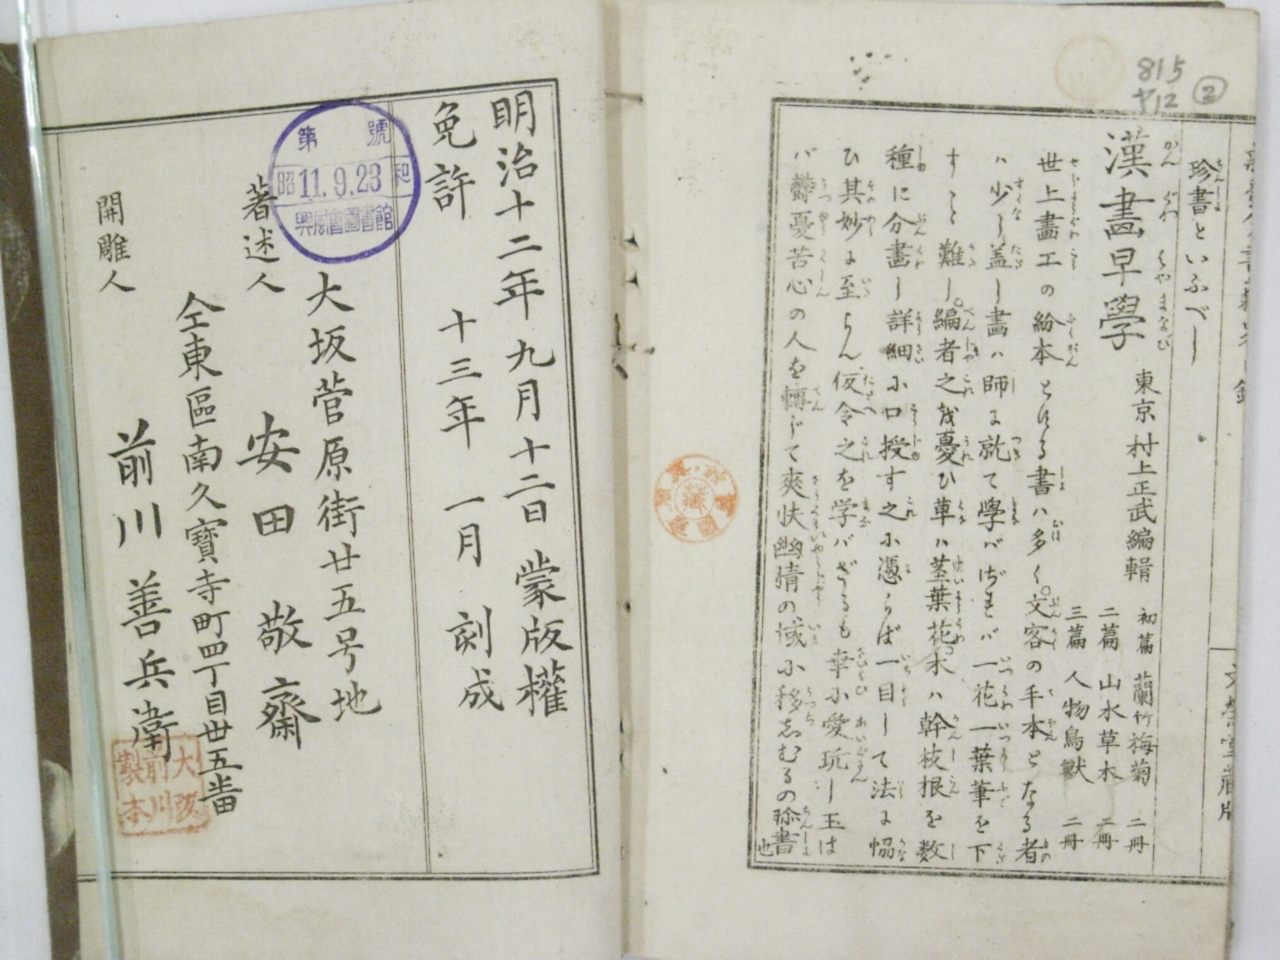 815
ヤ12
2
珍書といふべし
漢畫早學
東京 村上正武編輯
初篇 蘭竹梅菊 二冊
二篇 山水草木 二冊
三篇 人物鳥獣 二冊
世上畫工の紛本とする書ハ多く文客の手本となる者
ハ少し盖し畫ハ師に就て學バざれバ一花一葉筆を下
すこと難し。編者之を憂ひ草ハ莖葉花木ハ幹枝根を数
種に分畫し詳細に口授す之に憑らば一目して法に恊
ひ其妙に至らん仮令之を学バざるも幸に愛玩し玉は
バ欝憂苦心の人を轉じて爽快幽情の域に移さしむるの珍書
也
明治十二年九月十二日 蒙版權
免許 十三年 一月 刻成
大坂菅原街廿五号地
著述人 安田敬齋
仝東區南久寳寺町四丁目丗五畨
開雕人 前川善兵衞
第 號
昭和 11.9.23
興風會圖書館
大阪
前川
製本